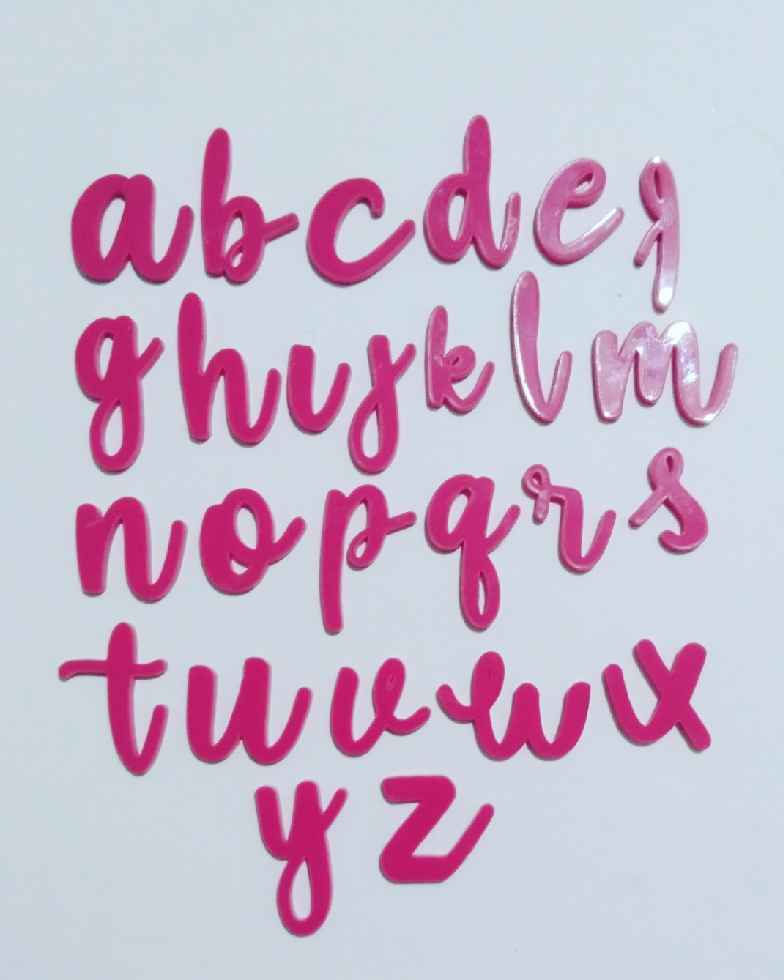 abcdef
ghijklm
nopqrs
tuvwx
yz